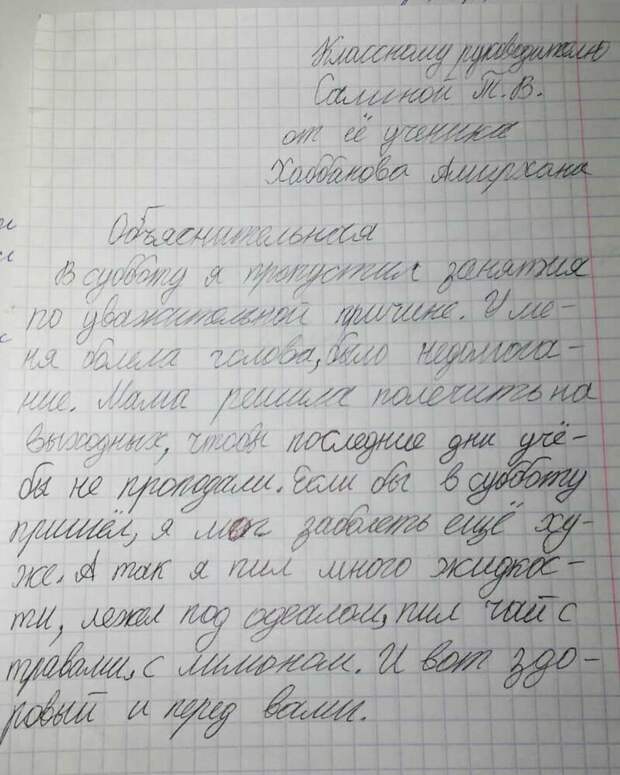 Классному руководителю
Салиной Т.В.
от её ученика
Хаббанова Амирхана
Объяснительная
В субботу я пропустил занятия
по уважительной причине. У ме-
ня болела голова, было недомога-
ние. Мама решила полечить на
выходных, чтобы последние дни учё-
бы не пропадали. Если бы в субботу
пришёл, я мог заболеть ещё ху-
же. А так я пил много жидкос-
ти, лежал под одеалом, пил чай с
травами, с лимоном. И вот здо-
ровый и перед вами.